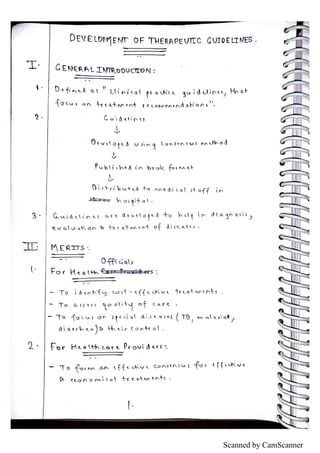 DEVELOPMENT OF THERAPEUTIC GUIDELINES.
I. GENERAL INTRODUCTION:
1. Defined as "clinical practice guidelines, that
focus on treatment recommendations".
2. Guidelines
↓
Developed using consensus method
↓
Published in book format
↓
Distributed to medical staff in
hospital.
3. Guidelines are developed to help in diagnosis,
evaluation & treatment of diseases.
II. MERITS:
1. For Health Officials:
- To identify cost-effective treatments.
- To assess quality of care.
- To focus on special diseases (TB, malarial,
diarrhea) & their control.
2. For Healthcare Providers:
- To form an effective consensus for effective
& economical treatments.
1.
Scanned by CamScanner